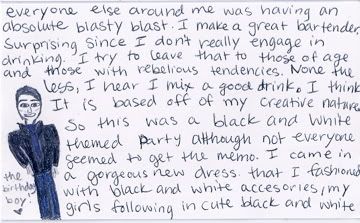 everyone else around me was having an
absolute blasty blast. I make a great bartender.
Surprising since I don't really engage in
drinking. I try to leave that to those of age
and those with rebelious tendencies. None the
less, I hear I mix a good drink, I think
It is based off of my creative nature.
So this was a black and white
themed party although not everyone
seemed to get the memo. I came in
a gorgeous new dress. that I fashioned
with black and white accesories, my
girls following in cute black and white
the
birthday
boy!